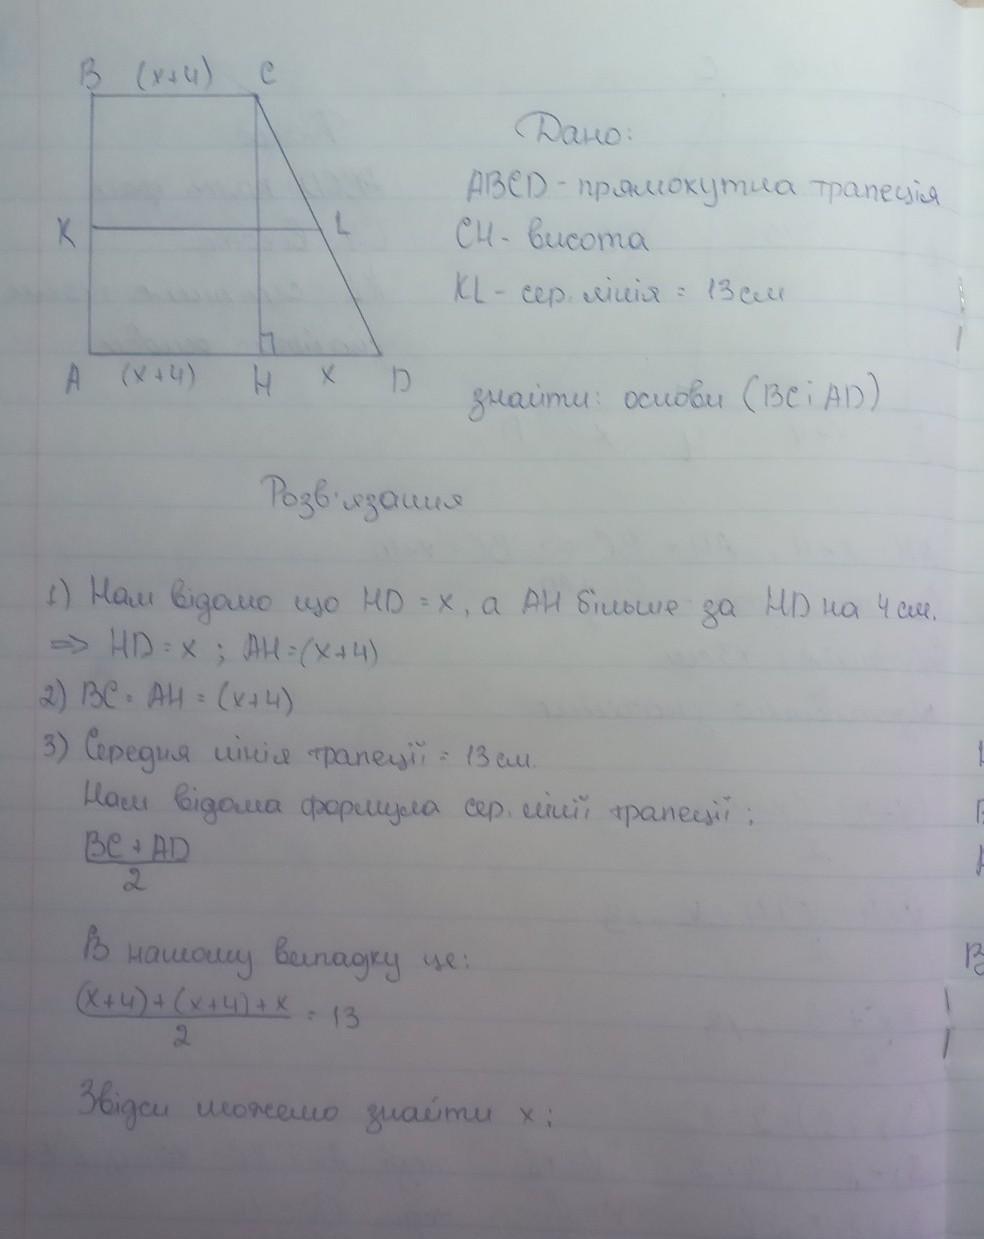 B (x+4) C
Дано:
ABCD - прямокутна трапеція
K L
CH - висота
KL - сер. лінія = 13 см
A (x+4) H x D
знайти: основи (BC і AD)
Розв'язання
1) Нам відомо що HD = x, а AH більше за HD на 4 см.
=> HD = x ; AH = (x+4)
2) BC = AH = (x+4)
3) Середня лінія трапеції = 13 см.
Нам відома формула сер. лінії трапеції:
BC + AD
2
В нашому випадку це:
(x+4)+(x+4)+x = 13
2
Звідси можемо знайти x: